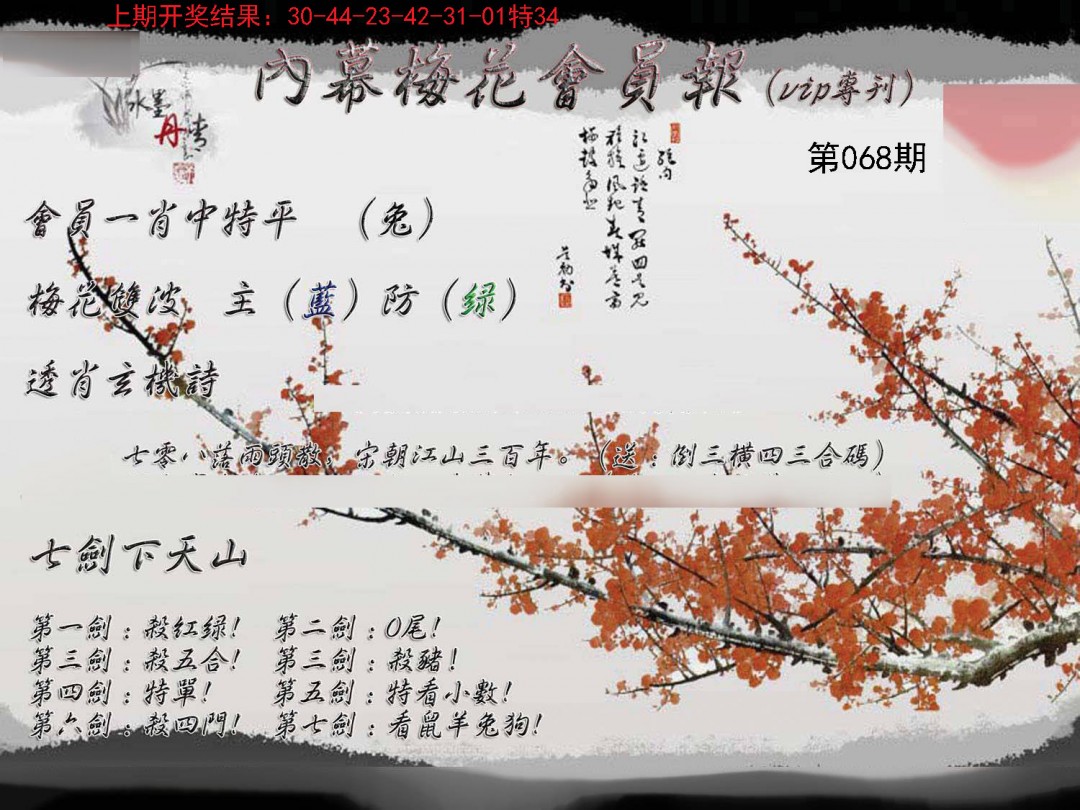 上期开奖结果：30-44-23-42-31-01特34
內幕梅花會員報（vip專刊）
水墨
丹青
第068期
會員一肖中特平　（兔）
梅花雙波　主（藍）防（绿）
透肖玄機詩
七零八落雨頭散，宋朝江山三百年。（送：倒三横四三合碼）
七劍下天山
第一劍：殺紅绿！　第二劍：0尾！
第三劍：殺五合！　第三劍：殺豬！
第四劍：特單！　第五劍：特看小數！
第六劍：殺四門！　第七劍：看鼠羊兔狗！